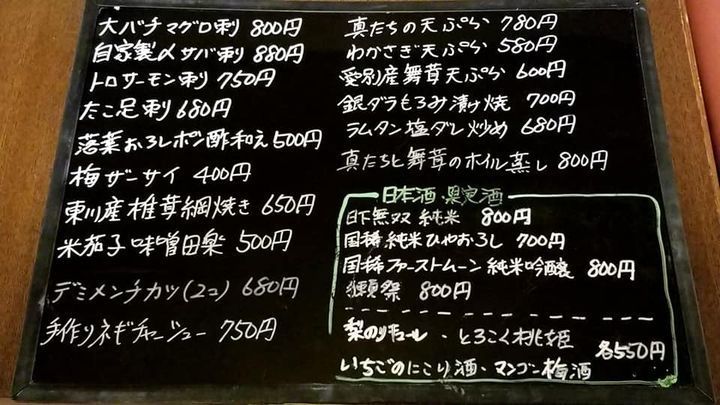 大バチマグロ刺 800円
自家製〆サバ刺 880円
トロサーモン刺 750円
たこ足刺 680円
落葉おろしポン酢和え 500円
梅ザーサイ 400円
東川産椎茸網焼き 650円
米茄子味噌田楽 500円
デミメンチカツ(2コ) 680円
手作りネギチャーシュー 750円
真たちの天ぷら 780円
わかさぎ天ぷら 580円
愛別産舞茸天ぷら 600円
銀ダラもろみ漬け焼 700円
ラムタン塩ダレ炒め 680円
真たちと舞茸のホイル蒸し 800円
日本酒 限定酒
日下無双 純米 800円
国稀純米ひやおろし 700円
国稀ファーストムーン 純米吟醸 800円
獺祭 800円
梨のリキュール・とろこく桃姫
各550円
いちごのにごり酒・マンゴー梅酒